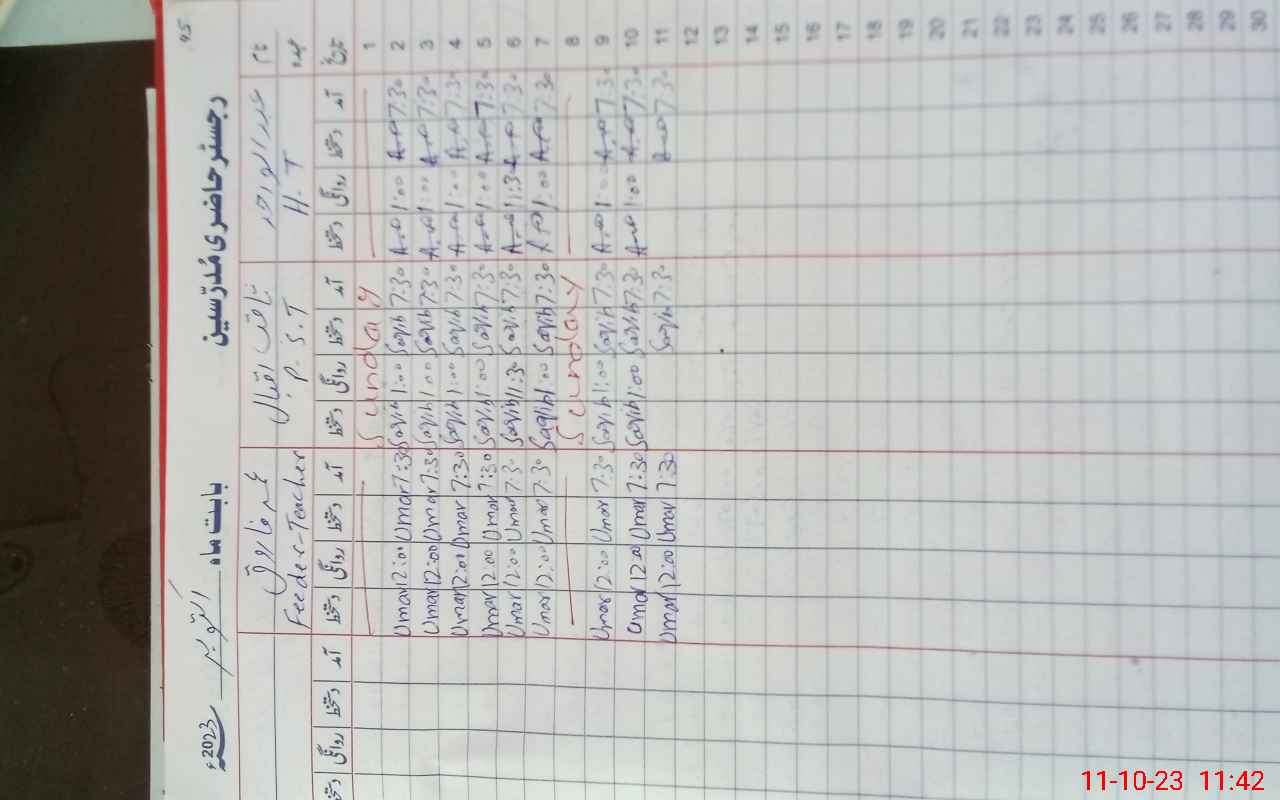 45
رجسٹر حاضری مُدرّسین
بابت ماہ اکتوبر 2023ء
نام ثاقب اقبال عمر فاروق
عہدہ H.T P.S.T Feeder-Teacher
تاریخ آمد دستخط روانگی دستخط آمد دستخط روانگی دستخط آمد دستخط روانگی دستخط آمد دستخط روانگی دستخط
1 Sunday
2 7:30 1:00 7:30 Saqib 1:00 Saqib 7:30 Umar 12:00 Umar
3 7:30 1:00 7:30 Saqib 1:00 Saqib 7:30 Umar 12:00 Umar
4 7:30 1:00 7:30 Saqib 1:00 Saqib 7:30 Umar 12:00 Umar
5 7:30 1:00 7:30 Saqib 1:00 Saqib 7:30 Umar 12:00 Umar
6 7:30 11:30 7:30 Saqib 11:30 Saqib 7:30 Umar 12:00 Umar
7 7:30 1:00 7:30 Saqib 1:00 Saqib 7:30 Umar 12:00 Umar
8 Sunday
9 7:30 1:00 7:30 Saqib 1:00 Saqib 7:30 Umar 12:00 Umar
10 7:30 1:00 7:30 Saqib 1:00 Saqib 7:30 Umar 12:00 Umar
11 7:30 7:30 Saqib 7:30 Umar 12:00 Umar
12
13
14
15
16
17
18
19
20
21
22
23
24
25
26
27
28
29
30
11-10-23 11:42